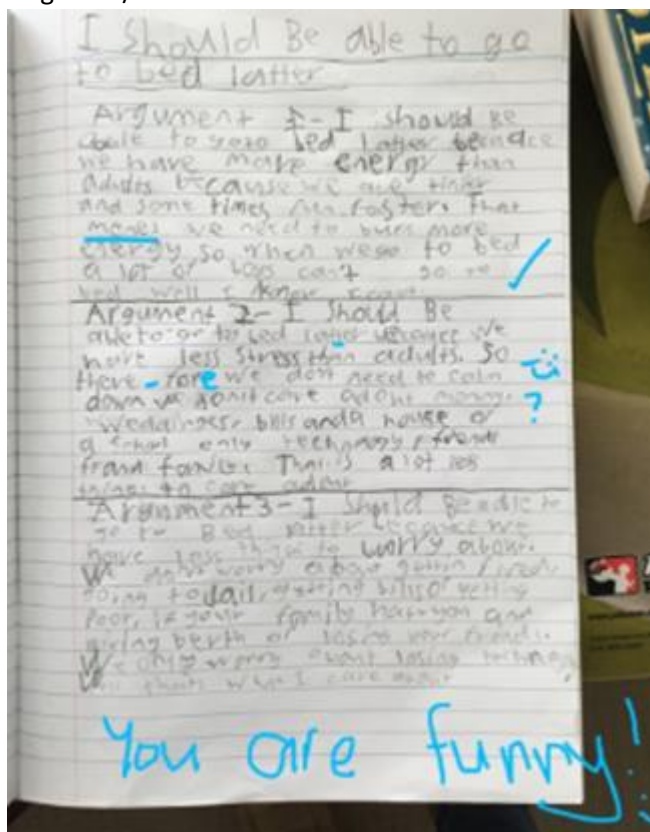 I Should Be able to go
to bed latter
Argument 1 - I should Be
able to go to bed latter becace
we have more energy than
adults because we are tinier
and some times run faster. That
menes we need to burn more
energy so when we go to bed
a lot of boys can't so
bed well I know
Argument 2 - I Should Be
able to go to bed latter because we
have less stress than adults. So
there-fore we don't need to calm
down we don't care adout money.
weddings, bills and a house or
a only technology, friends
and family. That is a lot less
things to care adout
Argument 3 - I Should Be adle to
go to Bed latter because we
have less things to worry about.
We don't worry about getting fired,
going to Jail, getting bills or getting
Poor, if your family hates you and
giving berth or losing your friends.
We only worry about losing
thats what I care about
You are funny!